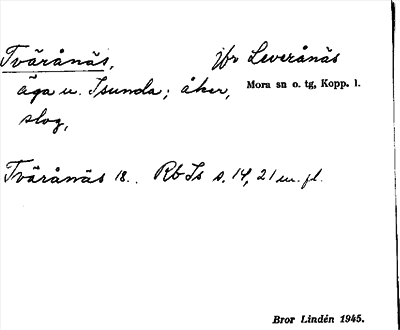 Tväränäs, jfr Leveränäs
äga u. Isunda; åker, Mora sn o. tg, Kopp. l.
slog,
Tväränäs 18.. Rb Is s. 14, 21 m. fl.
Bror Lindén 1945.